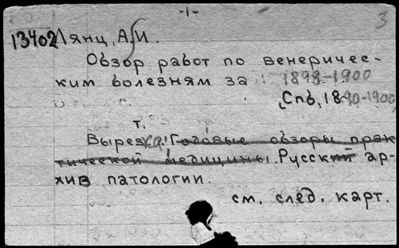 -1-
3
13402 Лянц, А.И.
Обзор работ по венеричес-
ким болезням за 1898-1900
Спб, 1890-1900
т.
Вырезка. Годовые обзоры прак
тической медицины. Русский ар-
хив патологии.
см. след. карт.